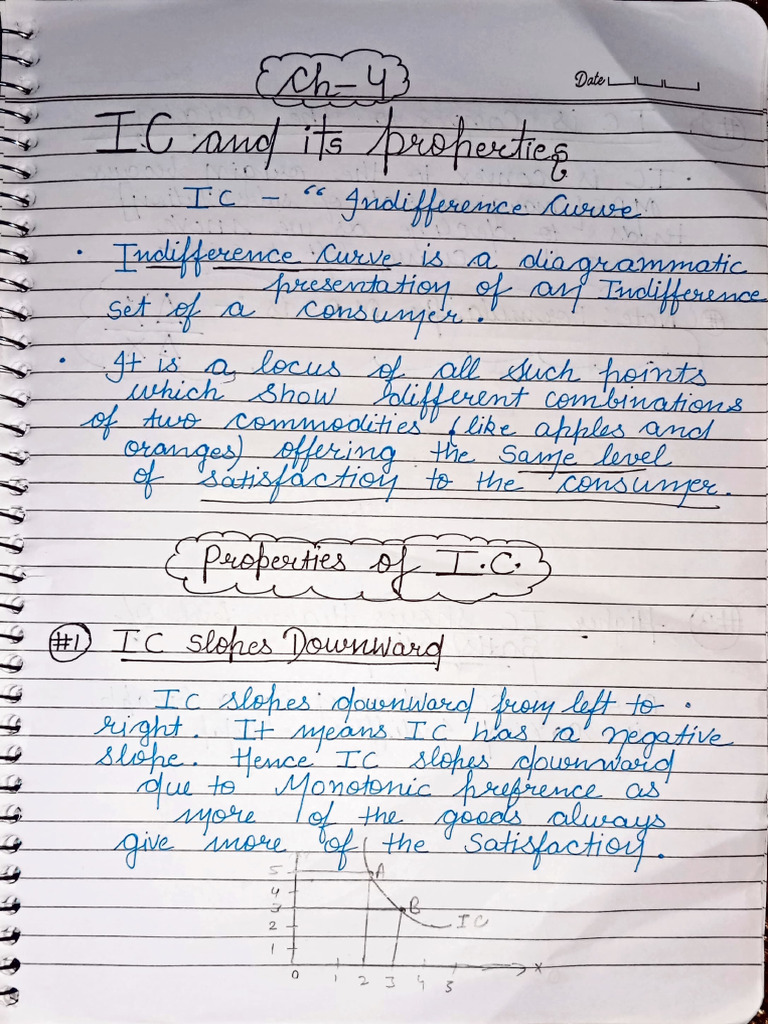 Ch-4
Date
IC and its properties
IC - “ Indifference Curve
· Indifference Curve is a diagrammatic
presentation of an Indifference
set of a consumer.
· It is a locus of all such points
which show different combinations
of two commodities (like apples and
oranges) offering the same level
of satisfaction to the consumer.
Properties of I.C.
#1 IC Slopes Downward
IC slopes downward from left to
right. It means IC has a negative
slope. Hence IC slopes downward
due to Monotonic prefrence as
more of the goods always
give more of the Satisfaction.
5 A
4
3 B
2 IC
1
0 1 2 3 4 5 x